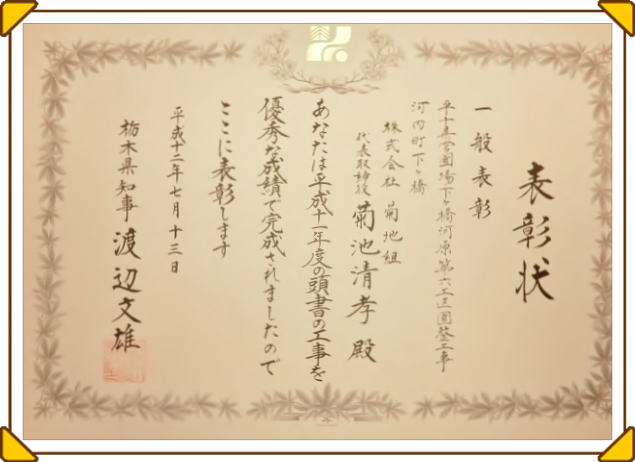 表彰状
一般表彰
平十一県営圃場下ヶ橋河原第六工区圃整工事
河内町下ヶ橋
株式会社 菊地組
代表取締役 菊池清孝 殿
あなたは平成十一年度の頭書の工事を
優秀な成績で完成されましたので
ここに表彰します
平成十二年七月十三日
栃木県知事 渡辺文雄